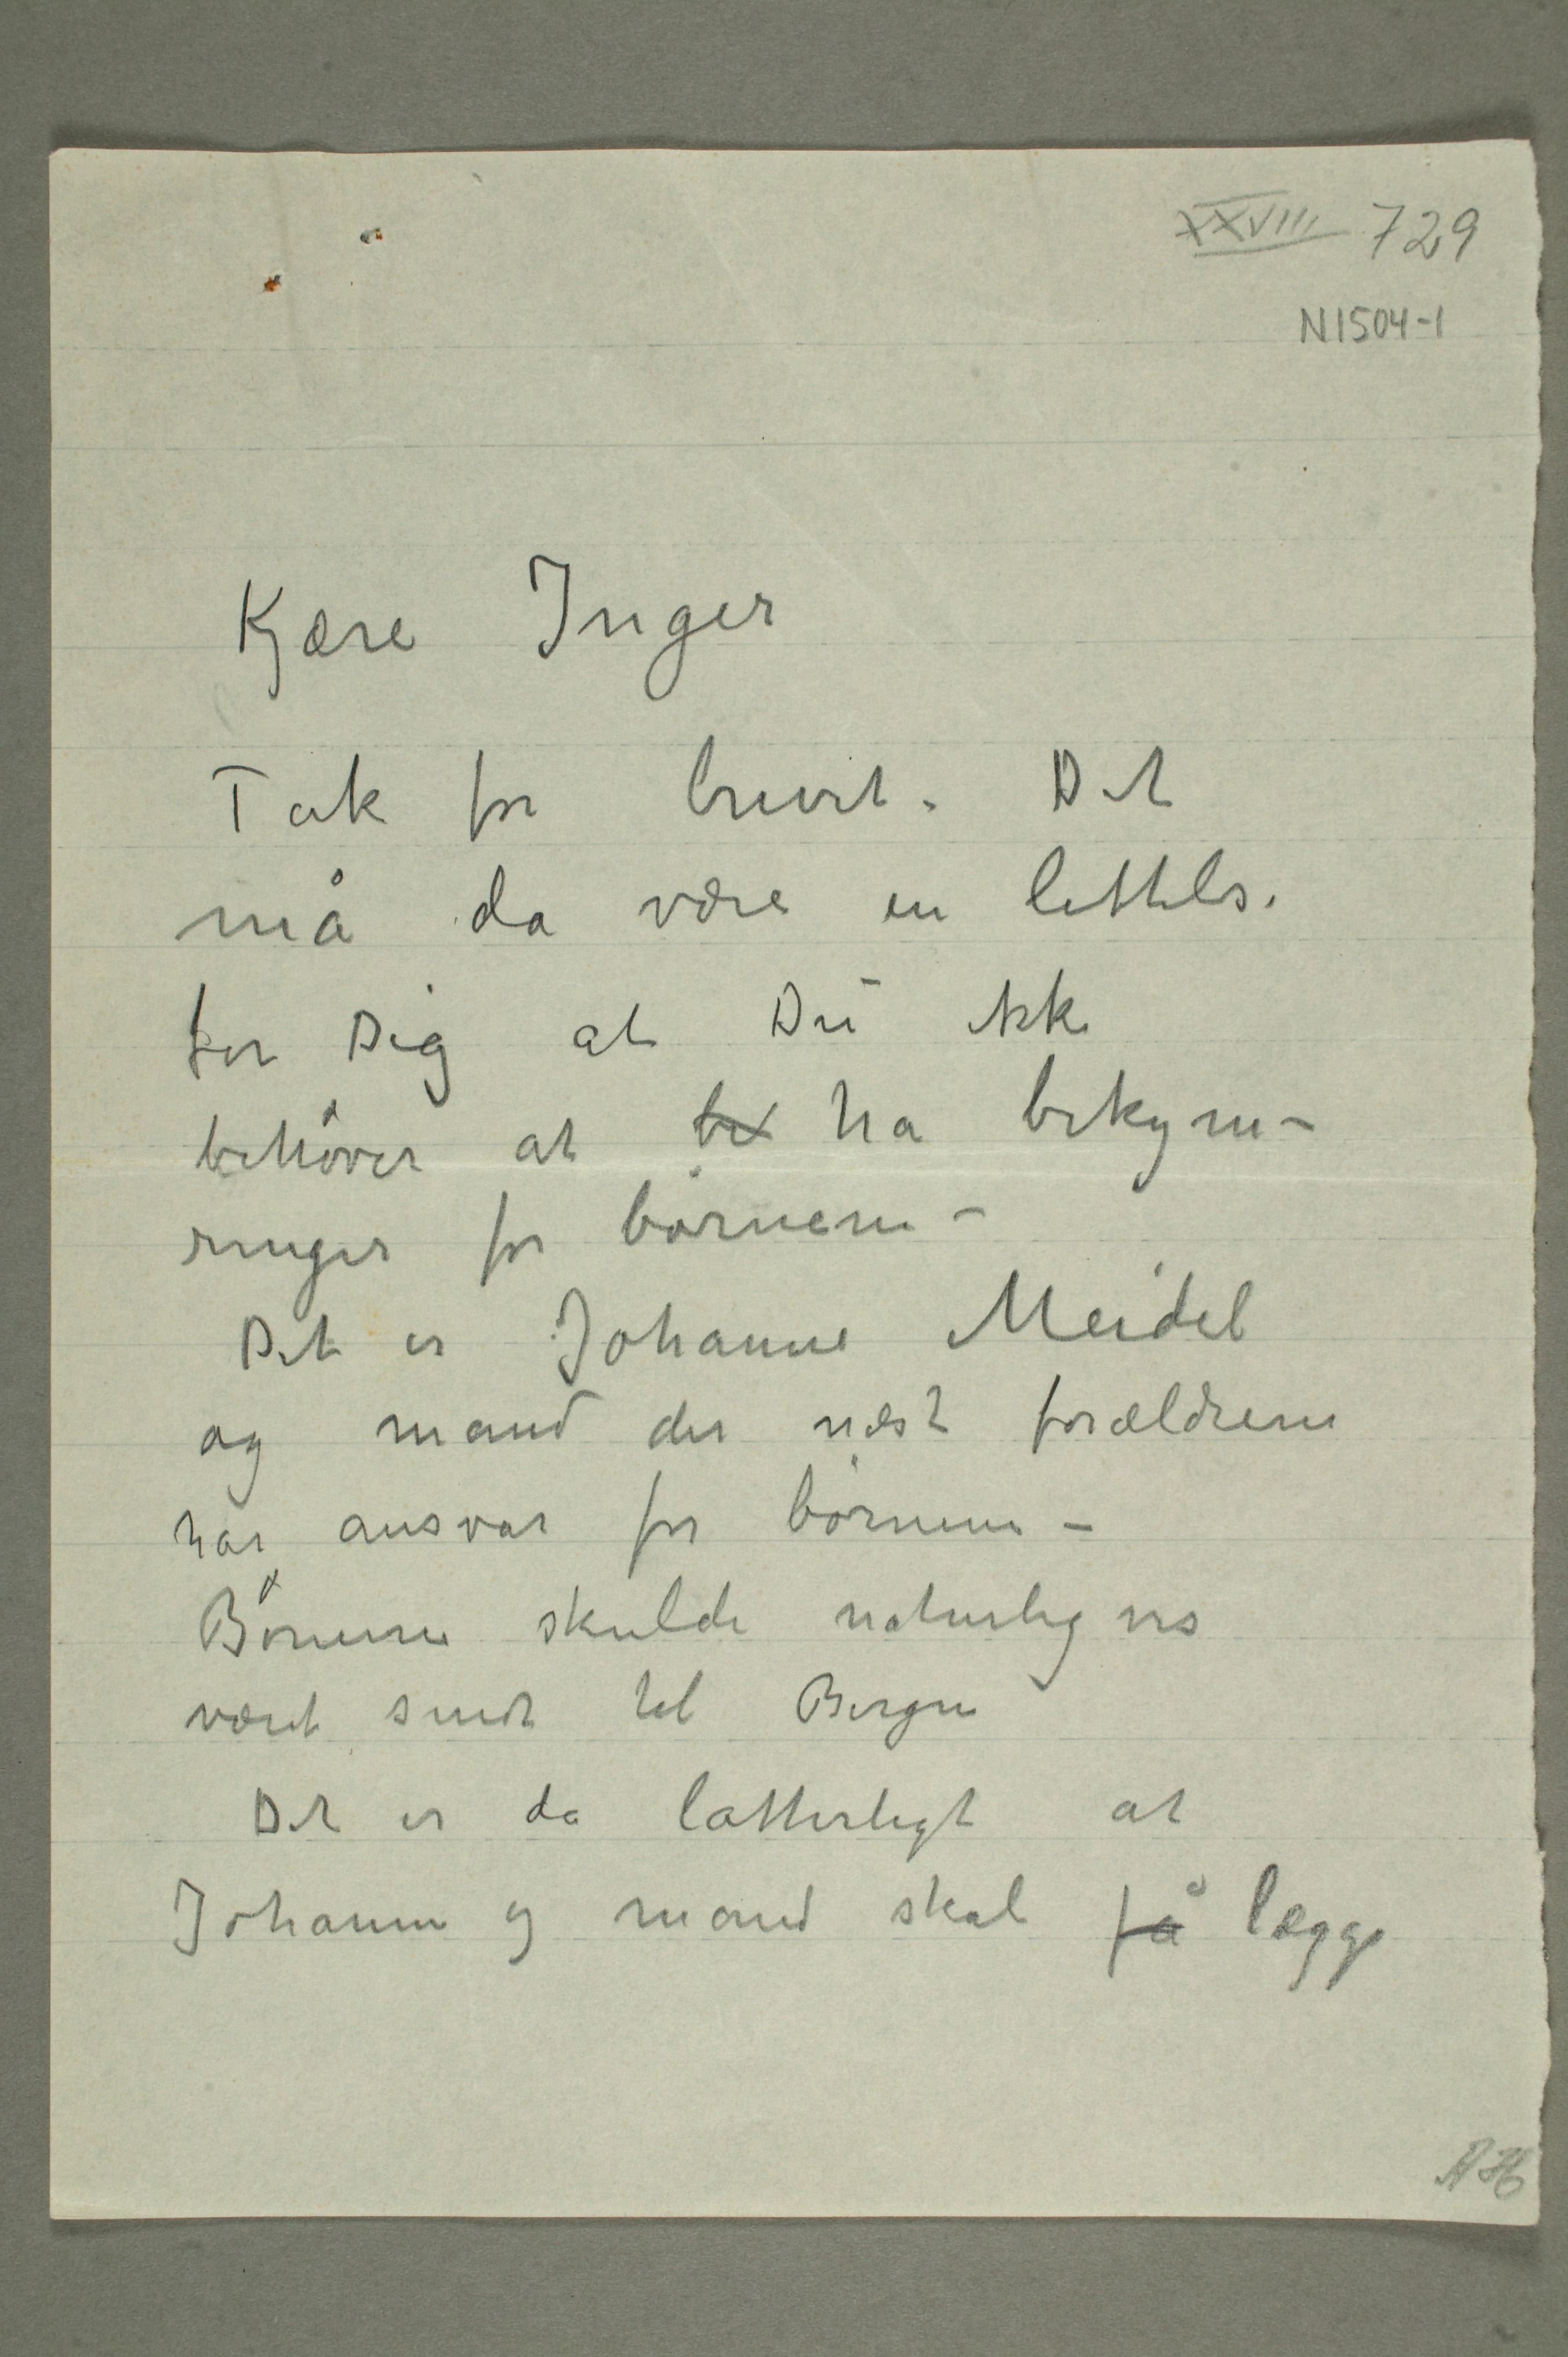 XXVIII 729
N1504-1
Kjære Inger
Tak for brevet. Det
må da være en lettelse
for Dig at Du ikke
behöver at be ha bekym-
ringer for börnene –
Det er Johanne Meidel
og mand der næst forældrene
har ansvar for börnene –
Börnene skulde naturligvis
været sendt til Bergen
Det er da latterligt at
Johanne og mand skal få lægge